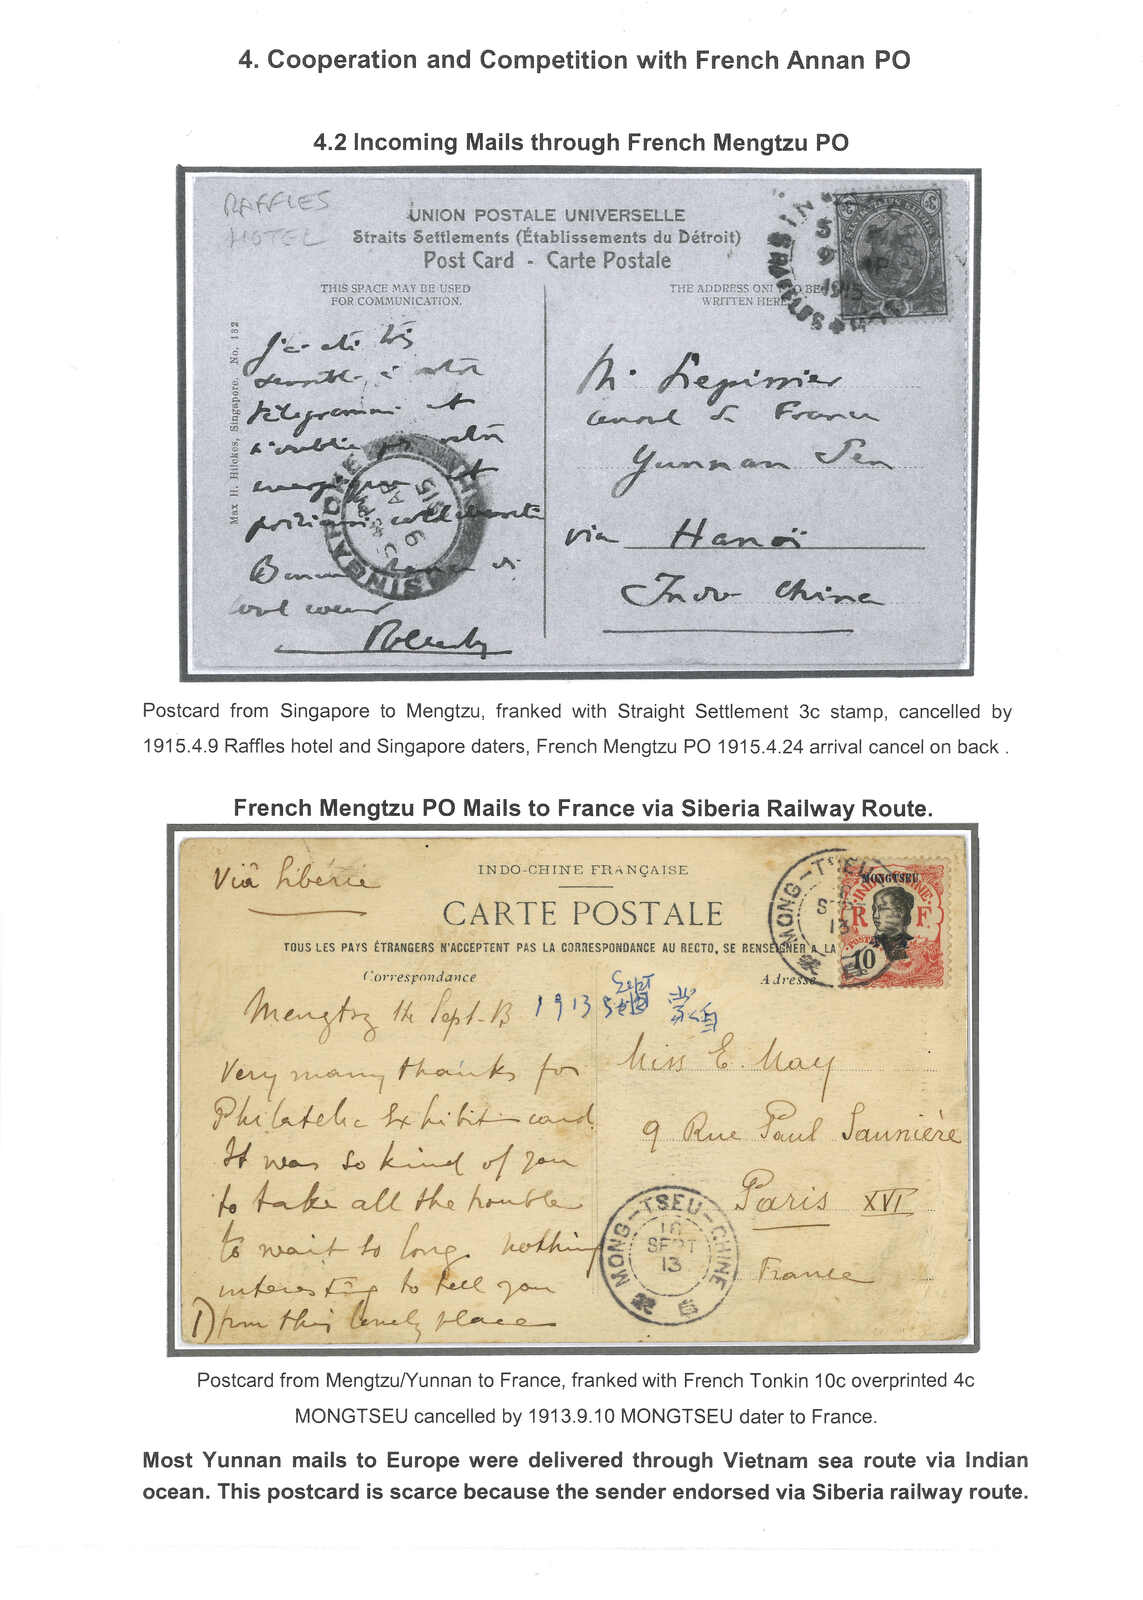 4. Cooperation and Competition with French Annan PO
4.2 Incoming Mails through French Mengtzu PO
RAFFLES
HOTEL
UNION POSTALE UNIVERSELLE
Straits Settlements (Établissements du Détroit)
Post Card - Carte Postale
THIS SPACE MAY BE USED
FOR COMMUNICATION.
THE ADDRESS ONLY TO BE
WRITTEN HERE
Max H. Hilckes, Singapore. No. 182
J'ai été très
sensible à votre
télégramme et
n'oublie pas votre
SINGAPORE
9
AP
1915
M.
Consul de France
Yunnan Sen
via Hanoï
Indo China
Postcard from Singapore to Mengtzu, franked with Straight Settlement 3c stamp, cancelled by
1915.4.9 Raffles hotel and Singapore daters, French Mengtzu PO 1915.4.24 arrival cancel on back .
French Mengtzu PO Mails to France via Siberia Railway Route.
Viâ Sibérie
INDO-CHINE FRANÇAISE
CARTE POSTALE
TOUS LES PAYS ÉTRANGERS N'ACCEPTENT PAS LA CORRESPONDANCE AU RECTO, SE RENSEIGNER A LA
Correspondance
Adresse
MONGTSEU
INDO-CHINE
R F
POSTES
10
MONG-TSEU
13
Mengtsz Sept. 13
1913 Sept 蒙自
Very many thanks for
Philatelic Exhibition card.
It was so kind of you
to take all the trouble
to wait so long. Nothing
interesting to tell you
from this lonely place
Miss E. May
9 Rue Paul Saunière
Paris XVI
France
MONG-TSEU-CHINE
10
SEPT
13
蒙自
Postcard from Mengtzu/Yunnan to France, franked with French Tonkin 10c overprinted 4c
MONGTSEU cancelled by 1913.9.10 MONGTSEU dater to France.
Most Yunnan mails to Europe were delivered through Vietnam sea route via Indian
ocean. This postcard is scarce because the sender endorsed via Siberia railway route.